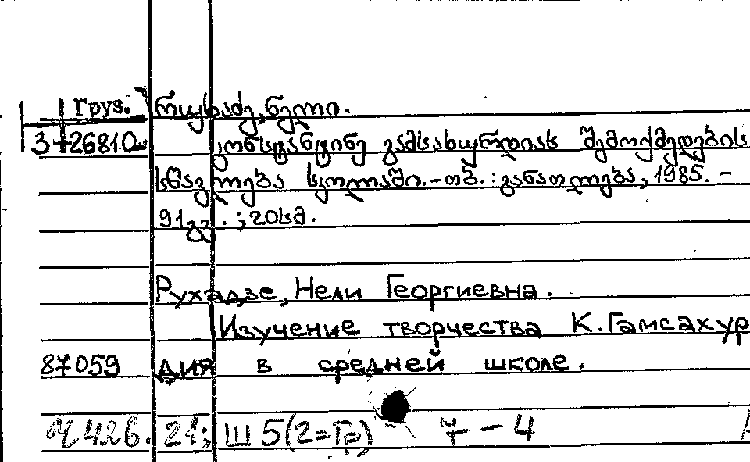 Груз. რუხაძე, ნელი.
3-26810 კონსტანტინე გამსახურდიას შემოქმედების
სწავლება სკოლაში. - თბ. : განათლება, 1985. -
91 გვ. ; 20 სმ.
Рухадзе, Нели Георгиевна.
Изучение творчества К. Гамсахур
87059 дия в средней школе.
Ч 426.21; Ш5(2=Гр) 7-4